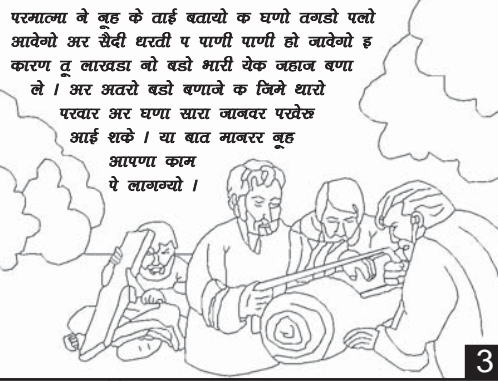 परमात्मा ने नूह के ताई बतायो क घणो तगडो पलो
आवेगो अर सैदी धरती प पाणी पाणी हो जावेगो इ
कारण तू लाखडा नो बडो भारी येक जहाज बणा
ले । अर अतरो बडो बणाजे क जिमे थारो
परवार अर घणा सारा जानवर पखेरु
आई शके । या बात मानरर नूह
आपणा काम
पे लागग्यो ।
3